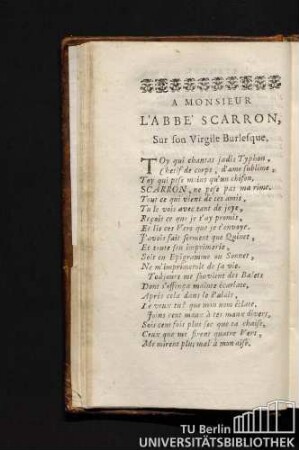 A MONSIEUR
L'ABBE' SCARRON,
Sur son Virgile Burlesque.
TOy qui chantas jadis Typhon,
Chetif de corps, d'ame sublime,
Toy qui pese moins qu'un chifon,
SCARRON, ne pese pas ma rime.
Tout ce qui vient de tes amis,
Je le vois avec tant de joye,
Reçois ce que je t'ay promis,
Et lis ces Vers que je t'envoye.
J'avois fait serment que Quinet,
Et toute son Imprimerie,
Soit en Epigramme ou Sonnet,
Ne m'imprimeroit de sa vie.
Toûjours me souvient des Balets
Dont l'affront malune écarlate,
Après cela dans le Palais,
Le veux tu? que mon nom éclate.
Joins cent maux à tes maux divers,
Sois cent fois plus sec que ta chaise,
Ceux que me firent quatre Vers,
Me mirent plus mal à mon aise.
TU Berlin
UNIVERSITÄTSBIBLIOTHEK